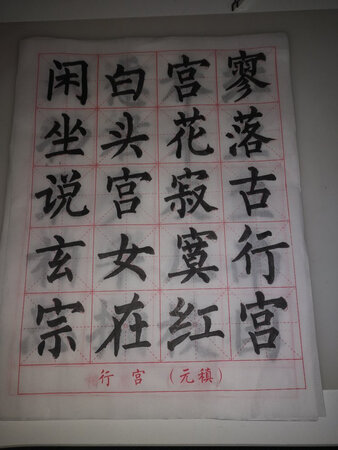 寥落古行宫
宫花寂寞红
白头宫女在
闲坐说玄宗
行宫（元稹）